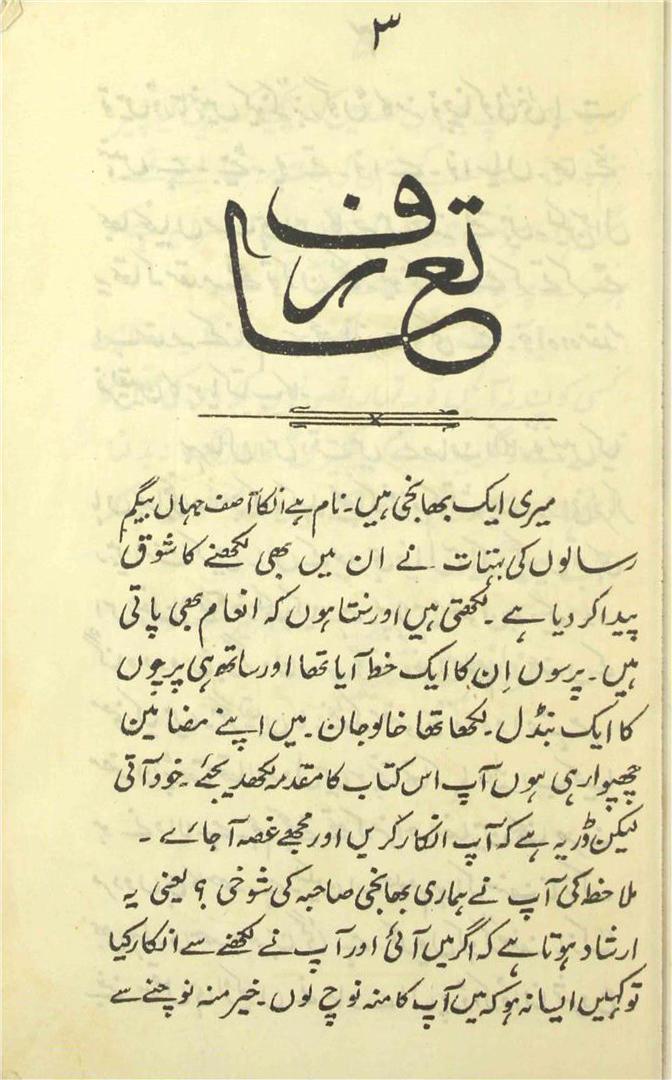 ۳
تعارف
میری ایک بھانجی ہیں۔ نام ہے انکا آصف جہاں بیگم
رسالوں کی بہتات نے ان میں بھی لکھنے کا شوق
پیدا کر دیا ہے۔ لکھتی ہیں اور سنتا ہوں کہ انعام بھی پاتی
ہیں۔ پرسوں اِن کا ایک خط آیا تھا اور ساتھ ہی پرچوں
کا ایک بنڈل۔ لکھا تھا خالو جان۔ میں اپنے مضامین
چھپوا رہی ہوں آپ اس کتاب کا مقدمہ لکھدیجئے۔ خود آتی
لیکن ڈر یہ ہے کہ آپ انکار کریں اور مجھے غصہ آ جائے۔
ملاخط کی آپ نے ہماری بھانجی صاحبہ کی شوخی؟ یعنی یہ
ارشاد ہوتا ہے کہ اگر میں آئی اور آپ نے لکھنے سے انکار کیا
تو کہیں ایسا نہ ہو کہ میں آپ کا منہ نوچ لوں۔ خیر منہ نوچنے سے